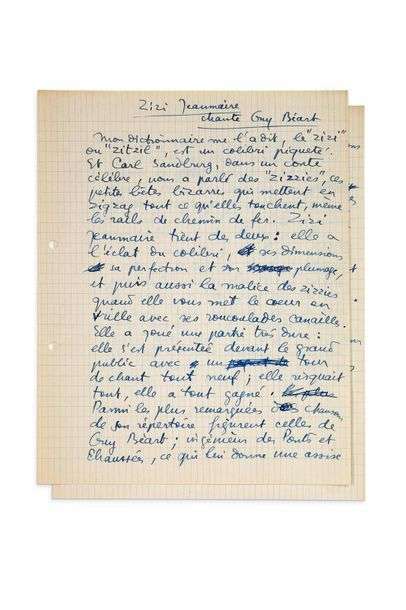 Zizi Jeanmaire
chante Guy Béart
Mon dictionnaire me l'a dit, le "zizi"
ou "zitzil", est un colibri piqueté.
Et Carl Sandburg, dans un conte
célèbre, nous a parlé des "zizzies", ces
petites bêtes bizarres qui mettent en
zigzag tout ce qu'elles touchent, même
les rails de chemin de fer. Zizi
Jeanmaire tient des deux : elle a
l'éclat du colibri, ses dimensions
sa perfection et son plumage,
et puis aussi la malice des zizzies
quand elle vous met le coeur en
vrille avec ses roucoulades canailles.
Elle a joué une partie très dure :
elle s'est présentée devant le grand
public avec un tour
de chant tout neuf ; elle risquait
tout, elle a tout gagné.
Parmi les plus remarquées des chansons
de son répertoire figurent celles de
Guy Béart ; ingénieur des Ponts et
Chaussées, ce qui lui donne une assise